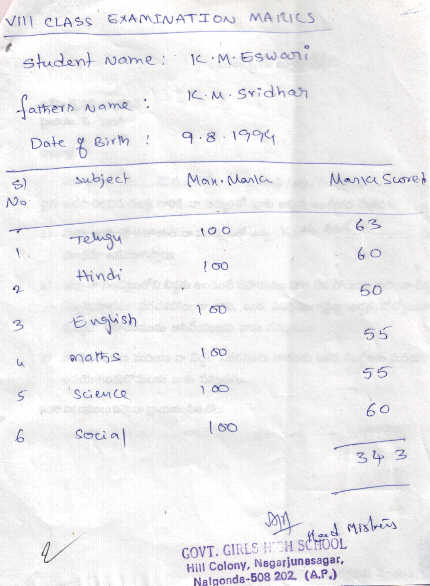 VIII CLASS EXAMINATION MARKS
Student Name : K.M.Eswari
fathers Name : K.M.Sridhar
Date of Birth : 9.8.1994
Sl No Subject Max.Marks Marks Scored
1 Telugu 100 63
2 Hindi 100 60
3 English 100 50
4 maths 100 55
5 Science 100 55
6 Social 100 60
343
Head Mistress
GOVT. GIRLS HIGH SCHOOL
Hill Colony, Nagarjunasagar,
Nalgonda-508 202 (A.P.)